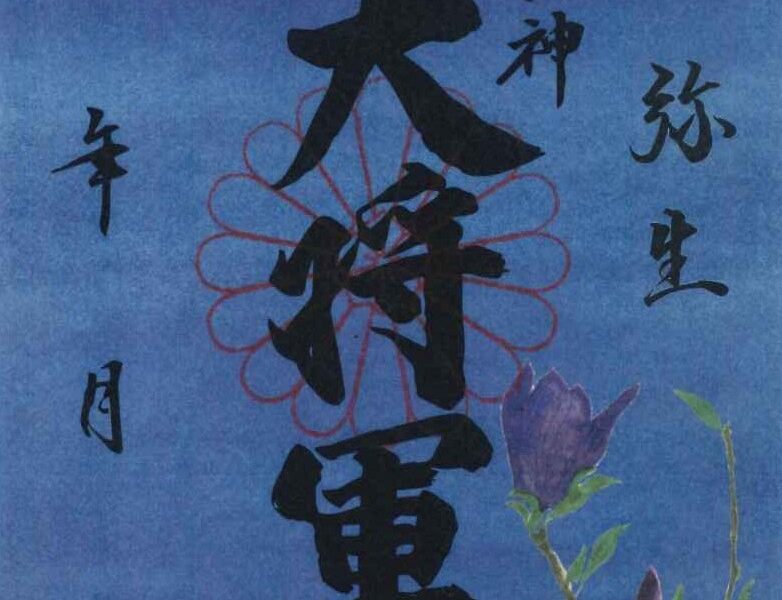 弥生
神
大将軍
年月